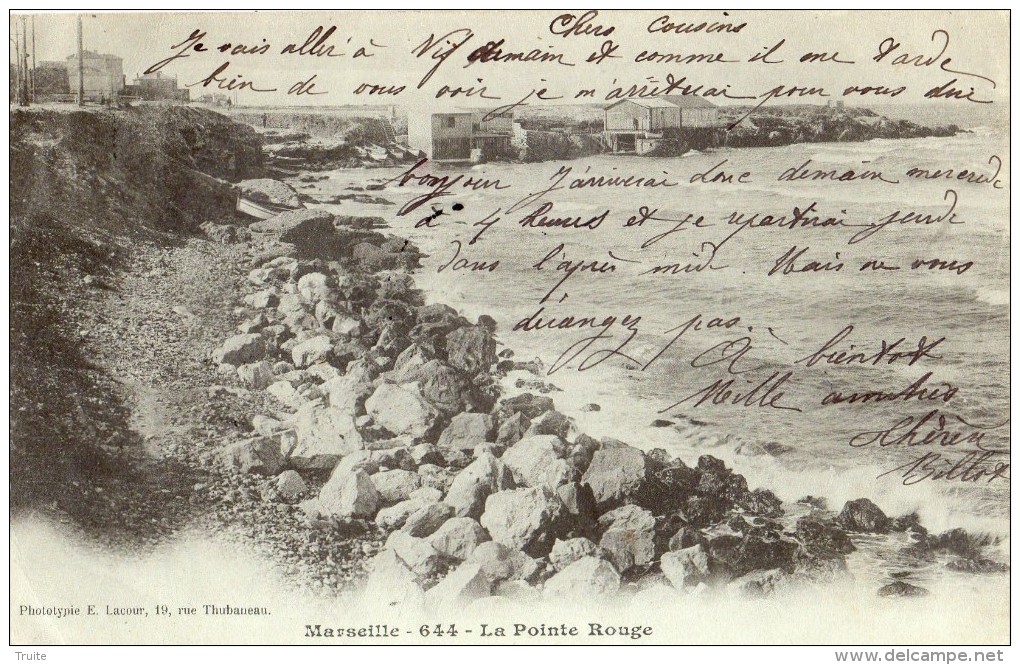 Chers Cousins
Je vais aller à Vif demain et comme il me tarde
bien de vous voir je m'arrêterai pour vous dire
bonjour J'arriverai donc demain mercredi
à 4 heures et je repartirai jeudi
dans l'après midi. Mais ne vous
dérangez pas. À bientot
Mille amitiés
Billot
Phototypie E. Lacour, 19, rue Thubaneau.
Marseille - 644 - La Pointe Rouge
Truite
www.delcampe.net